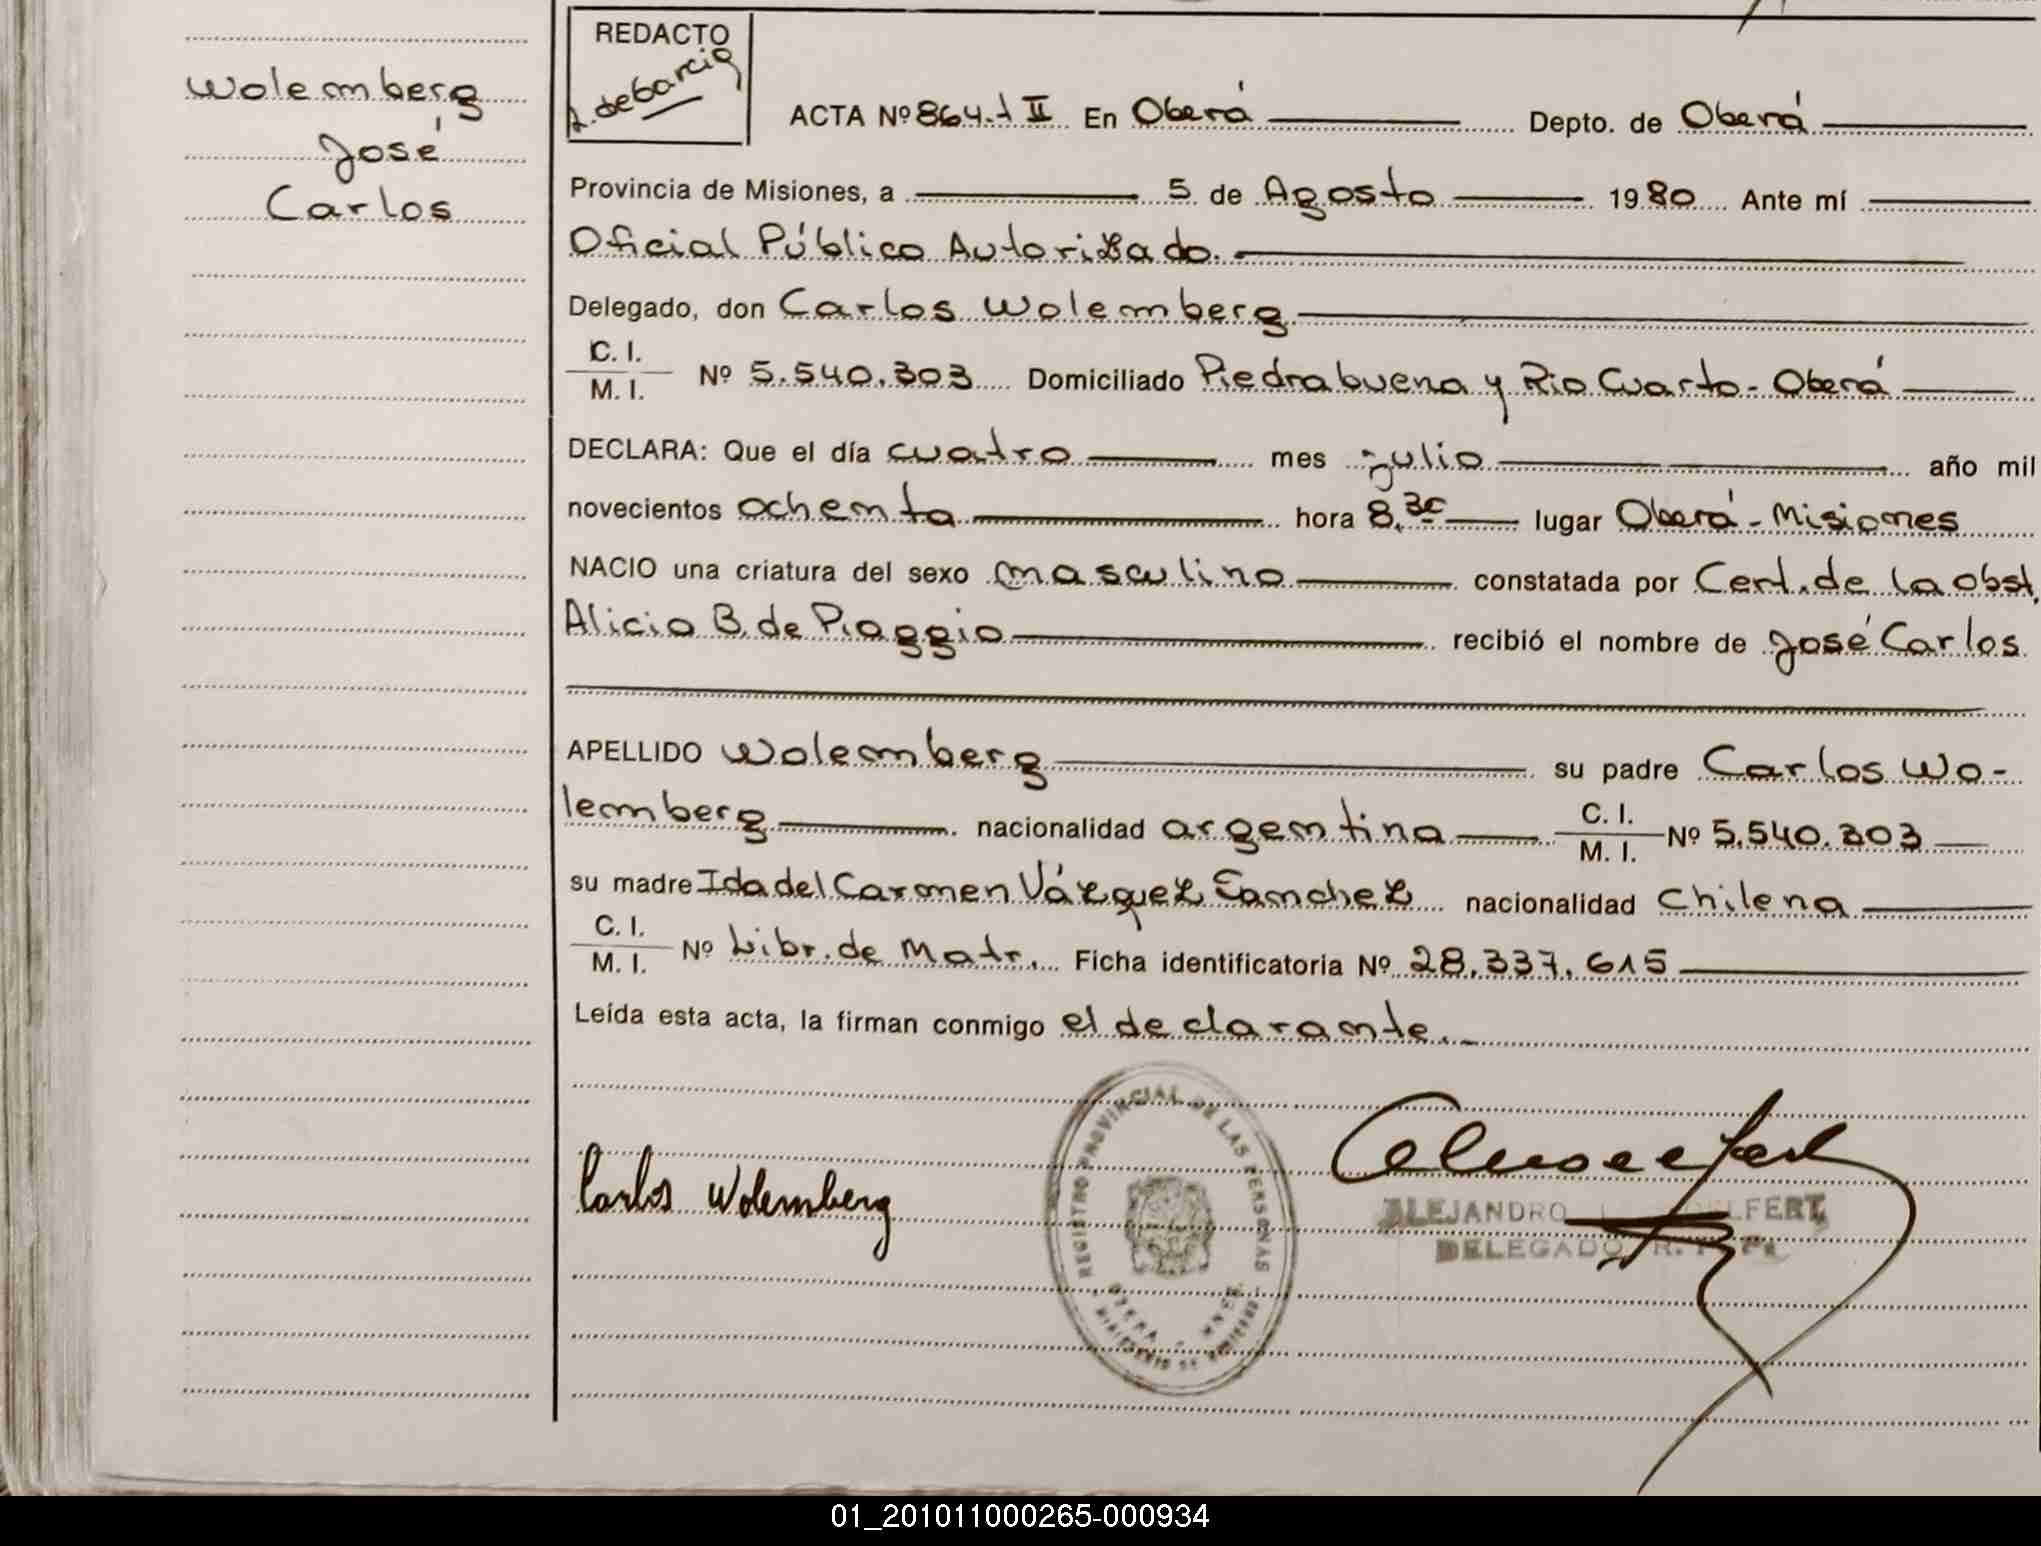 Wolemberg
José
Carlos
REDACTO
ACTA Nº 864.t II En Oberá Depto. de Oberá
Provincia de Misiones, a 5 de Agosto 1980 Ante mí
Oficial Público Autorizado.
Delegado, don Carlos Wolemberg
C. I.
M. I. Nº 5.540.303 Domiciliado Piedrabuena y Rio Cuarto - Oberá
DECLARA: Que el día cuatro mes julio año mil
novecientos ochenta hora 8,30 lugar Oberá - Misiones
NACIO una criatura del sexo masculino constatada por Cert. de la Obst.
Alicia B. de Piaggio recibió el nombre de José Carlos
APELLIDO Wolemberg su padre Carlos Wo-
lemberg nacionalidad argentina C. I.
M. I. Nº 5.540.303
su madre Ida del Carmen Vázquez Sanchez nacionalidad Chilena
C. I.
M. I. Nº Libr. de Matr. Ficha identificatoria Nº 28.337.615
Leída esta acta, la firman conmigo el declarante.
REGISTRO PROVINCIAL DE LAS PERSONAS
Carlos Wolemberg
ALEJANDRO
DELEGADO
01_201011000265-000934